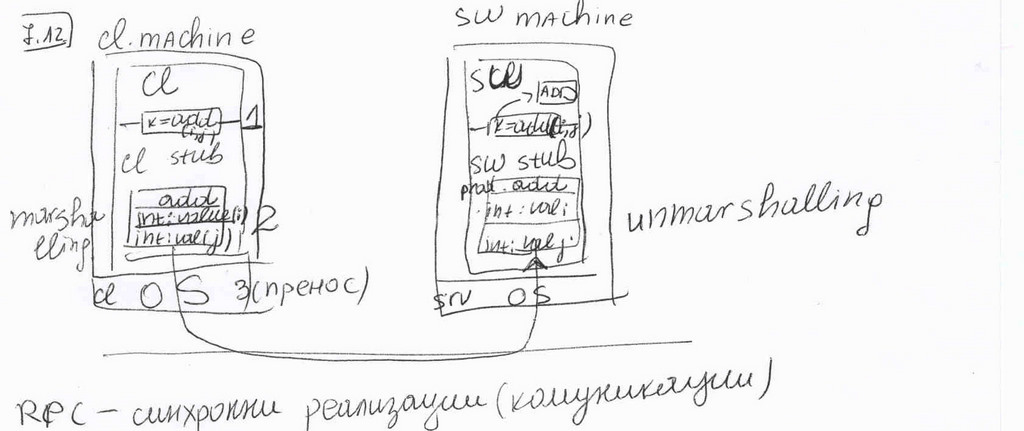 7.12
cl. machine
cl
k=add
(i,j)
1
cl stub
add
int: value(i)
int: val(j)
2
marsha
lling
cl OS 3(пренос)
srv machine
ADD
k=add(i,j)
srv stub
proc. add
int: val i
int: val j
unmarshalling
srv OS
RPC - синхронни реализации (комуникации)